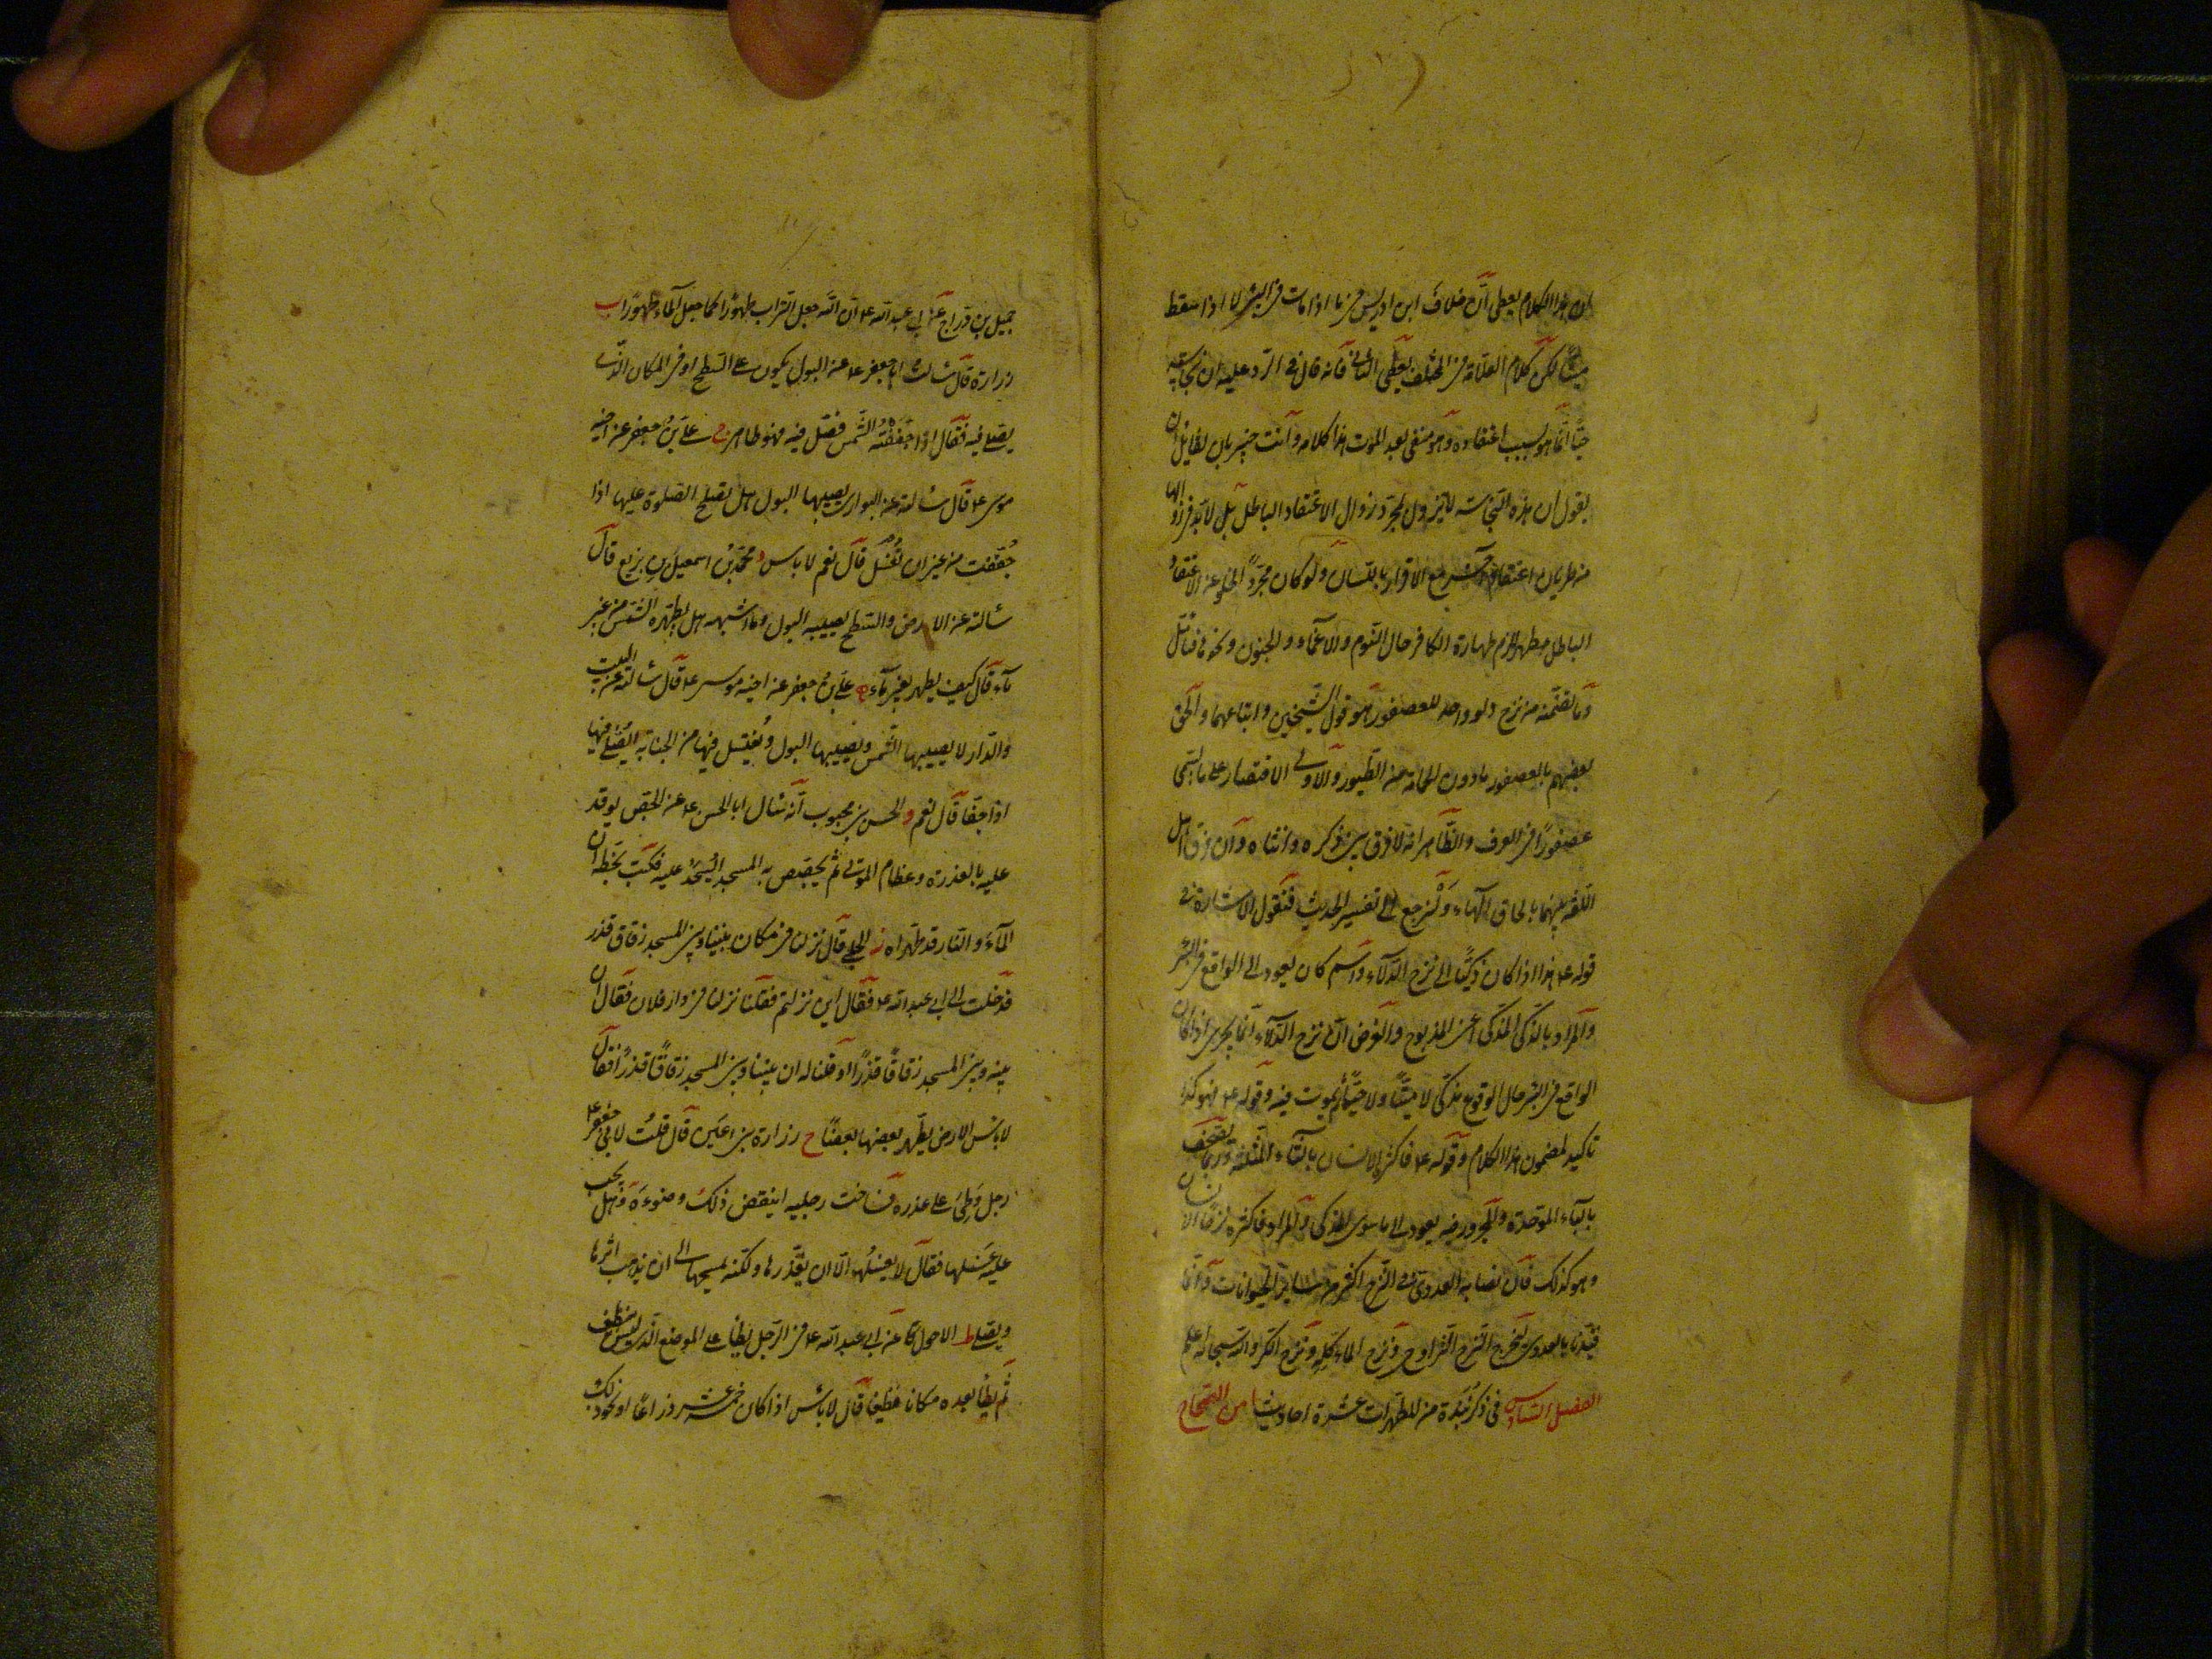 لان هذا الكلام يعطى ان خلاف ابن ادريس فيما اذا مات فى البئر لا اذا سقط
ميتا لكن كلام العلامة فى المختلف يعطى الثانى فانه قال فى الرد عليه ان نجاسته
حيا انما هو بسبب اعتقاده وهو منفى بعد الموت هذا كلامه وانت خبير بان لقايل ان
يقول ان هذه النجاسة لا يزول بمجرد زوال الاعتقاد الباطل بل لا بد فى زوالها
من طريان اعتقاد مع الاقرار باللسان ولو كان مجرد الخلو عن الاعتقاد
الباطل مطهرا لزم طهارة الكافر حال النوم والاغماء والجنون ونحوها فتامل
وما تضمنه من نزح دلو واحد للعصفور هو قول الشيخين واتباعهما والحق
بعضهم بالعصفور ما دون الحمامة من الطيور والاولى الاقتصار على ما يسمى
عصفورا فى العرف والظاهر انه لا فرق بين ذكره وانثاه وان فرق اهل
اللغة بينهما بالحاق الهاء ولنرجع الى تفسير الحديث فنقول الاشارة فى
قوله ع هذا اذا كان ذكيا الى نزح الدلاء واسم كان يعود الى الواقع فى البئر
والمراد بالذكى المذكى اعنى المذبوح والغرض ان نزح الدلاء انما يجرى اذا كان
الواقع فى البئر حال الوقوع مذكى لا ميتا ولا حيا ثم يموت فيه وقوله ع فهو كذا
تاكيد لمضمون هذا الكلام وقوله ع فاكثره الانسان بالثاء المثلثة وربما يصحف
بالباء الموحدة والمجرور فيه يعود الى ما سوى المذكى والمراد فاكثره نزحا الانسان
وهو كذلك فان نصابه العددى فى النزح اكثر من ساير الحيوانات وانما
قيدنا بالعددى ليخرج النزح التراوح ونزح الماء كله ونزح الكر والله سبحانه اعلم
الفصل السادس فى ذكر نبذة من المطهرات عشرة احاديث ا من الصحاح
جميل بن دراج عن ابى عبد الله ع ان الله جعل التراب طهورا كما جعل الماء طهورا ب
زرارة قال سالت ابا جعفر ع عن البول يكون على السطح او فى المكان الذى
يصلى فيه فقال اذا جففته الشمس فصل فيه فهو طاهر ج على بن جعفر عن اخيه
موسى ع قال سالته عن البوارى يصيبها البول هل يصلح الصلوة عليها اذا
جففت من غير ان تغسل قال نعم لا باس د محمد بن اسمعيل بن بزيع قال
سالته عن الارض والسطح يصيبه البول وما اشبهه هل يطهره الشمس من غير
ماء قال كيف يطهر بغير ماء ه على بن جعفر عن اخيه موسى ع قال سالته عن البيت
والدار لا يصيبها الشمس ويصيبها البول ويغتسل فيها من الجنابة ايصلى فيها
اذا جفا قال نعم و الحسن بن محبوب انه سال ابا الحسن ع عن الجص يوقد
عليه بالعذرة وعظام الموتى ثم يجصص به المسجد ايسجد عليه فكتب بخطه ان
الماء والنار قد طهراه ز الحلبى قال نزلنا فى مكان بيننا وبين المسجد زقاق قذر
فدخلت الى ابى عبد الله ع فقال اين نزلتم فقلنا نزلنا فى دار فلان فقال ان
بينه وبين المسجد زقاقا قذرا او قلنا له ان بيننا وبين المسجد زقاقا قذرا فقال
لا باس الارض يطهر بعضها بعضا ح زرارة بن اعين قال قلت لابى جعفر ع
رجل وطئ على عذرة فساخت رجليه اينقض ذلك وضوءه وهل يجب
عليه غسلها فقال لا يغسلها الا ان يقذرها ولكنه يمسحها الى ان يذهب اثرها
ويصلى ط الاحول عن ابى عبد الله ع فى الرجل يطأ على الموضع الذى ليس بنظيف
ثم يطأ بعده مكانا نظيفا قال لا باس اذا كان خمسة عشر ذراعا او نحو ذلك